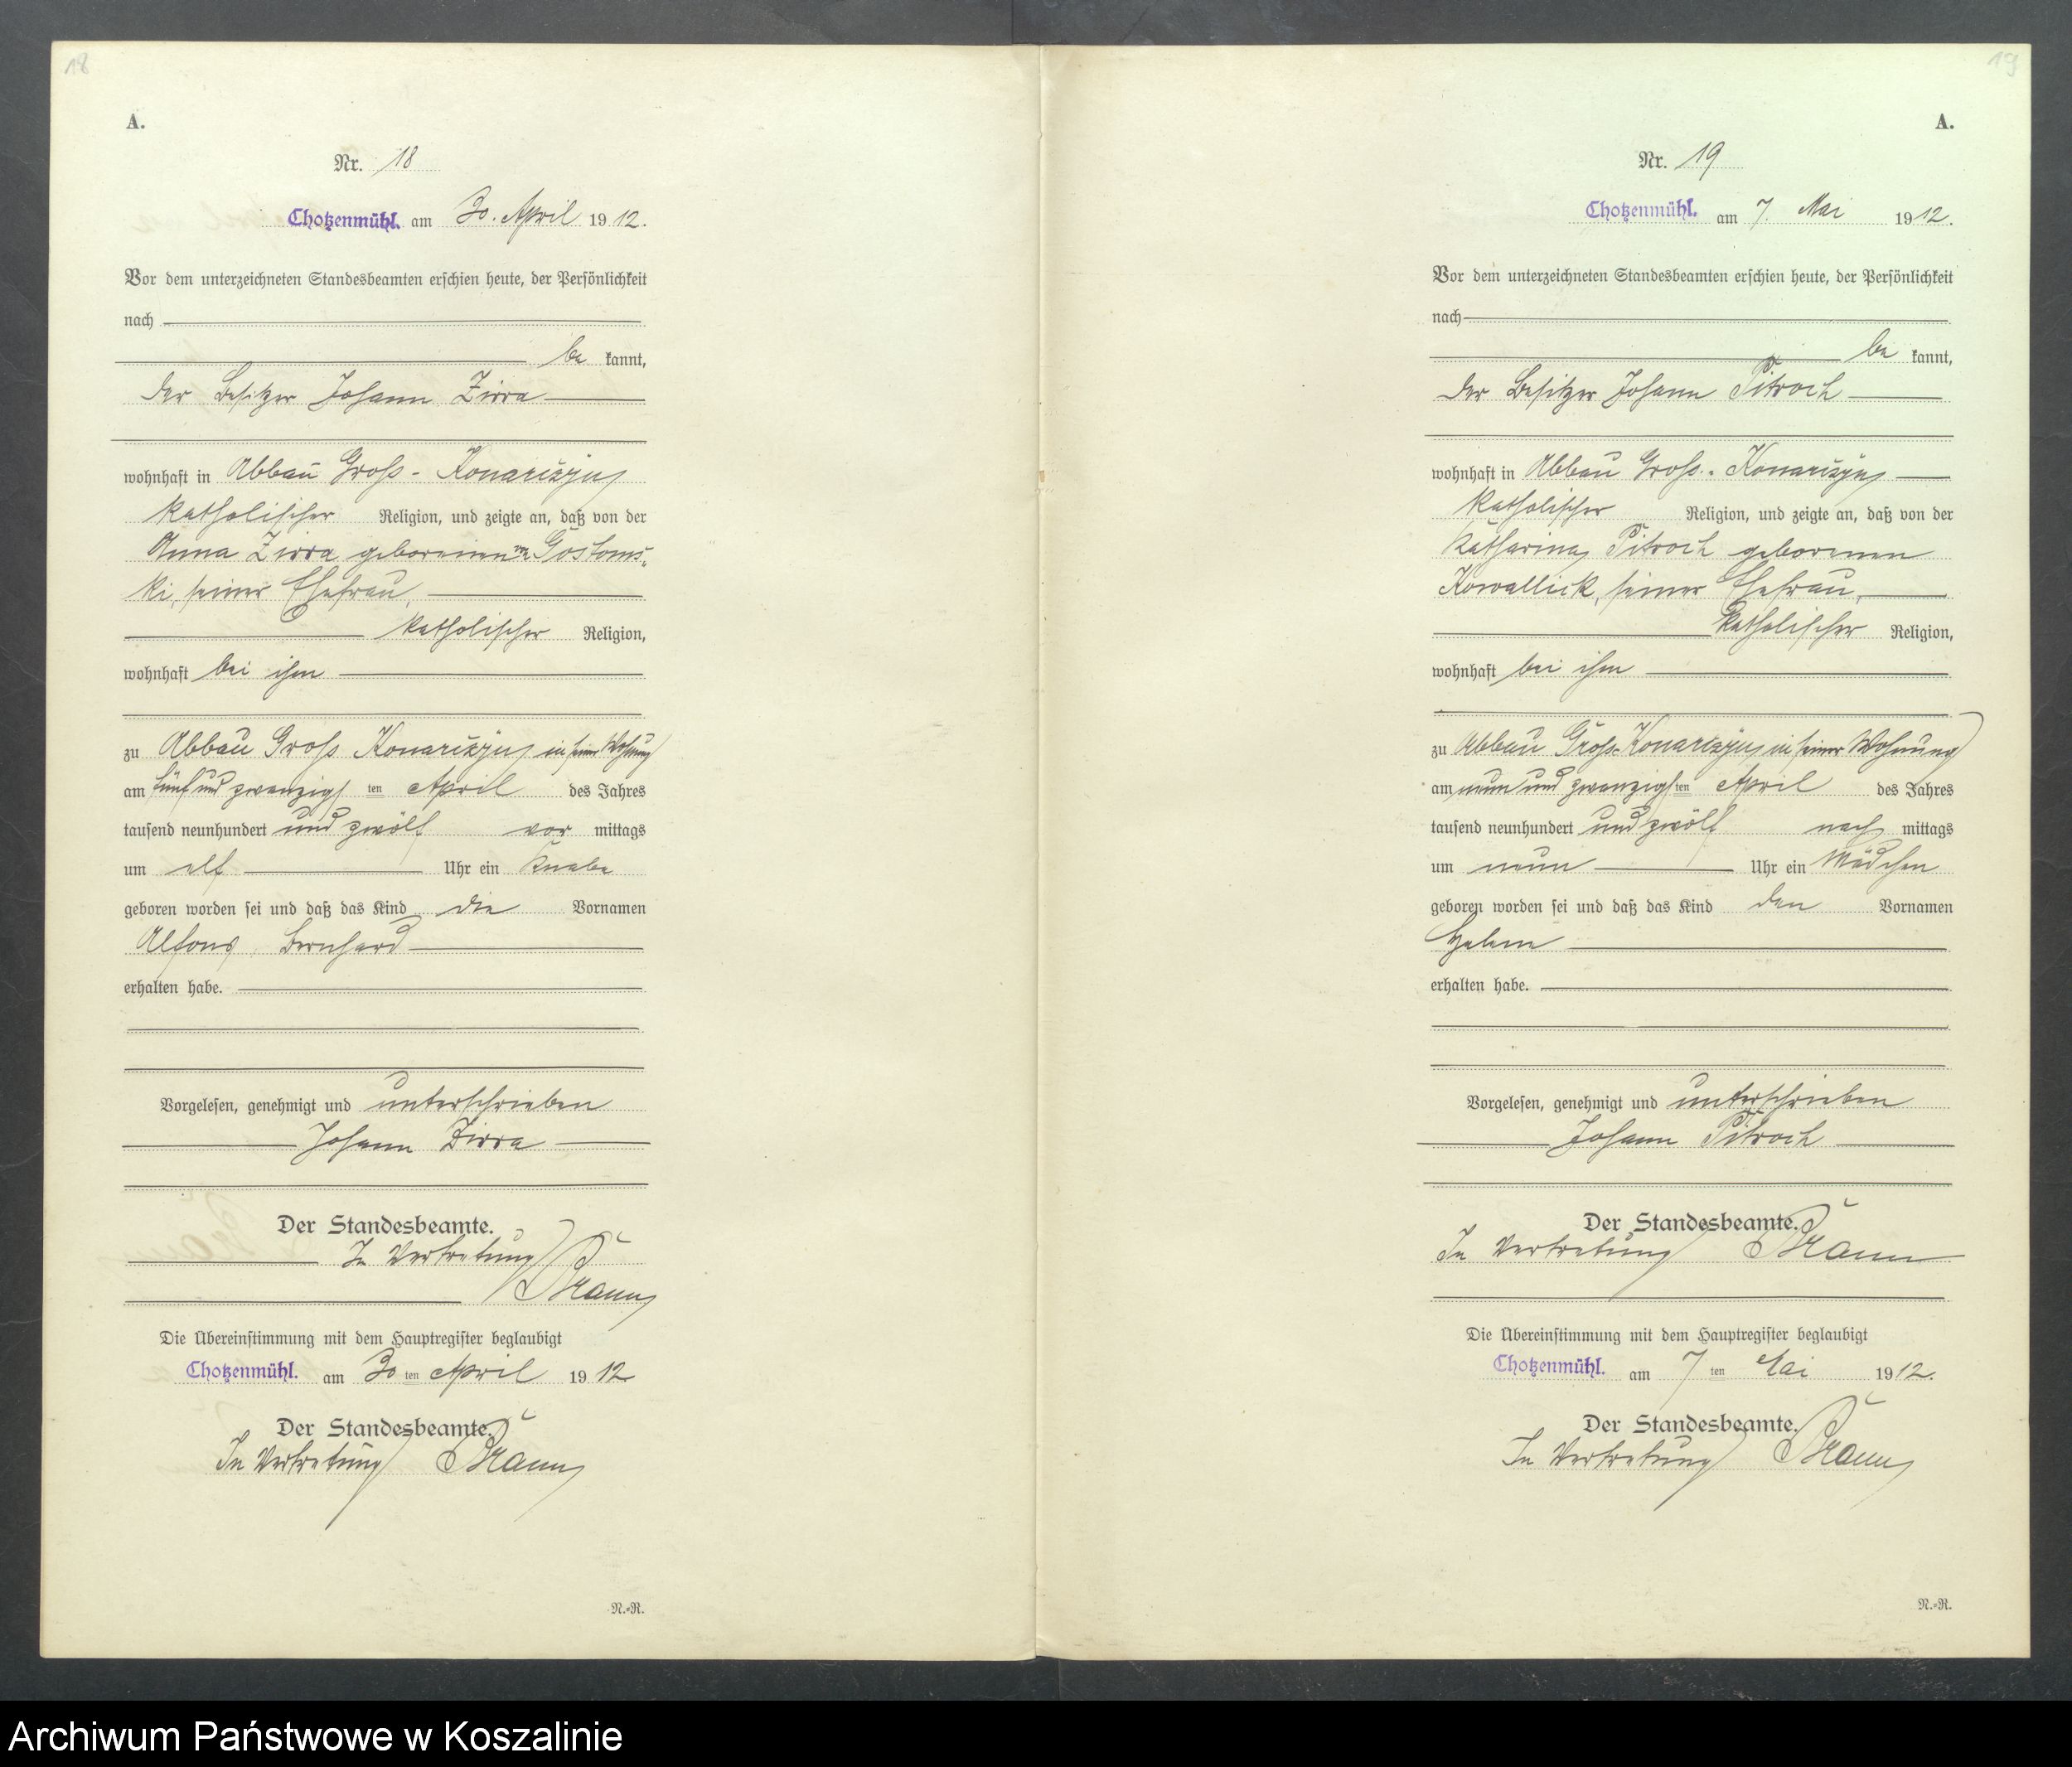 18
A.
Nr. 18
Chotzenmühl. am 30. April 1912.
Vor dem unterzeichneten Standesbeamten erschien heute, der Persönlichkeit
nach
be kannt,
der Besitzer Johann Zirra
wohnhaft in Abbau Gross-Konarczyn
katholischer Religion, und zeigte an, daß von der
Anna Zirra geborenen von Gostoms-
ki, seiner Ehefrau,
katholischer Religion,
wohnhaft bei ihm
zu Abbau Gross Konarczyn in seiner Wohnung
am fünf und zwanzigsten April des Jahres
tausend neunhundert und zwölf vor mittags
um elf Uhr ein Knabe
geboren worden sei und daß das Kind die Vornamen
Alfons, Bernhard
erhalten habe.
Vorgelesen, genehmigt und unterschrieben
Johann Zirra
Der Standesbeamte.
In Vertretung
Braun
Die Übereinstimmung mit dem Hauptregister beglaubigt
Chotzenmühl. am 30 ten April 1912
Der Standesbeamte.
In Vertretung Braun
N.-R.
19
A.
Nr. 19
Chotzenmühl. am 7. Mai 1912.
Vor dem unterzeichneten Standesbeamten erschien heute, der Persönlichkeit
nach
be kannt,
der Besitzer Johann Pitroch
wohnhaft in Abbau Gross-Konarczyn
katholischer Religion, und zeigte an, daß von der
Katharina Pitroch geborenen
Kowallick, seiner Ehefrau,
katholischer Religion,
wohnhaft bei ihm
zu Abbau Gross-Konarczyn, in seiner Wohnung
am neun und zwanzigsten April des Jahres
tausend neunhundert und zwölf nach mittags
um neun Uhr ein Mädchen
geboren worden sei und daß das Kind den Vornamen
Helene
erhalten habe.
Vorgelesen, genehmigt und unterschrieben
Johann Pitroch
Der Standesbeamte.
In Vertretung Braun
Die Übereinstimmung mit dem Hauptregister beglaubigt
Chotzenmühl. am 7 ten Mai 1912.
Der Standesbeamte.
In Vertretung Braun
N.-R.
Archiwum Państwowe w Koszalinie